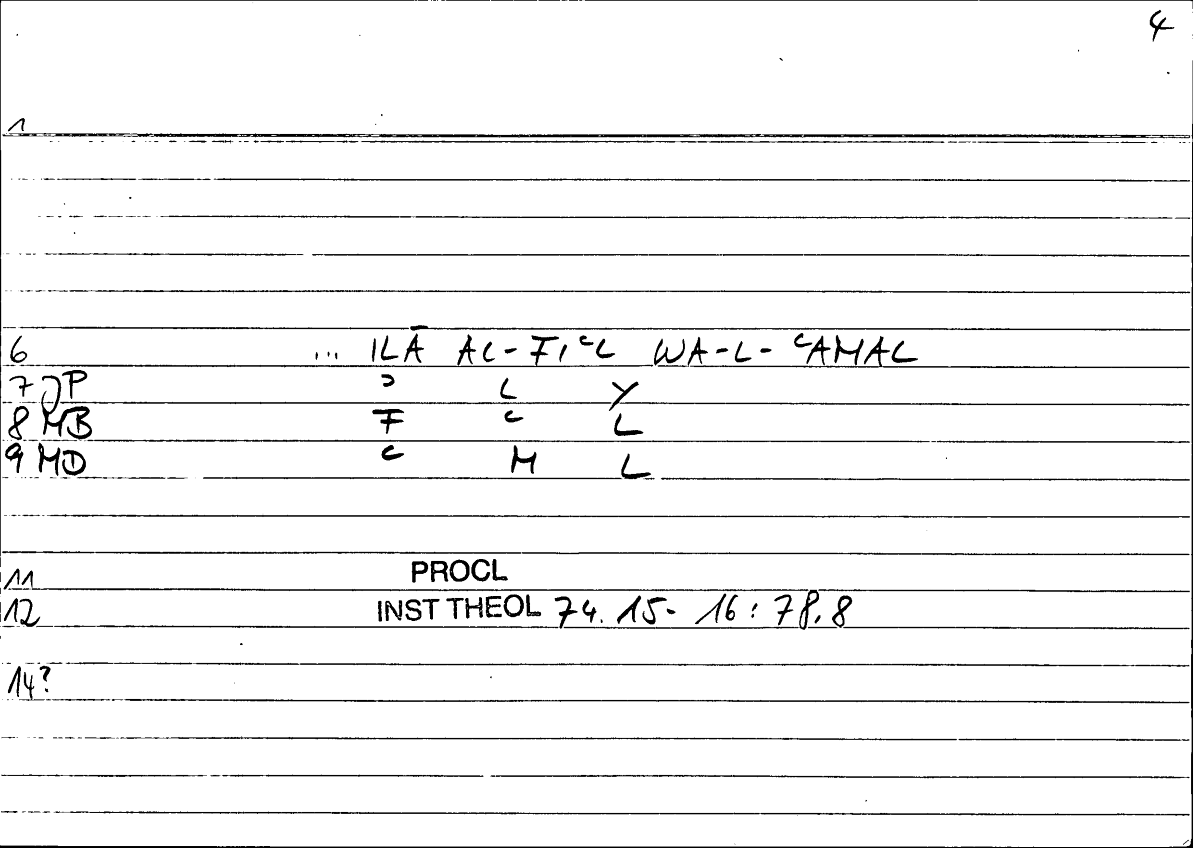 4
1
6 ... ILĀ AL-FIʿL WA-L-ʿAMAL
7 JP ʾ L Y
8 MB F ʿ L
9 MD ʿ M L
11 PROCL
12 INST THEOL 74.15-16:78.8
14?